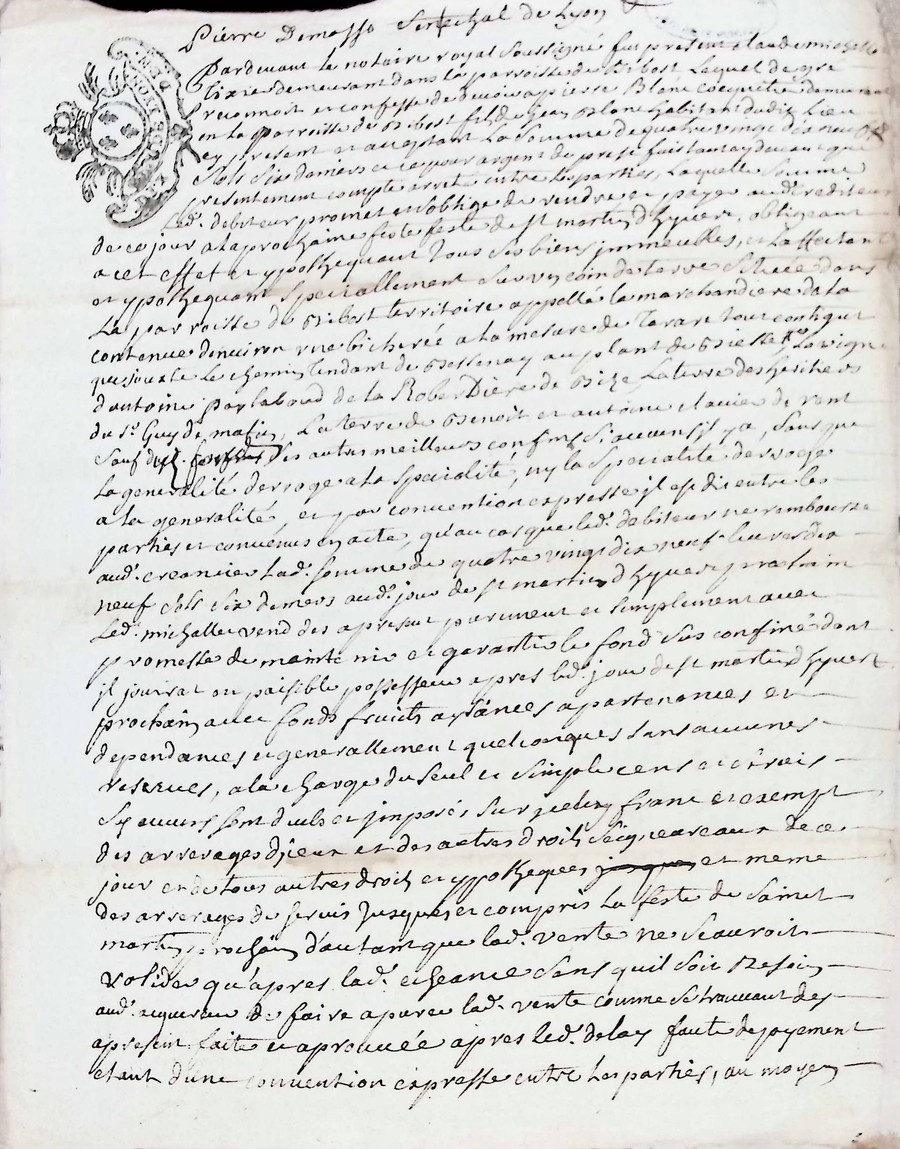 Pierre Demasso Senechal de Lyon
Pardevant le notaire royal soussigné fut present Claude michallet
tixier demeurant dans la parroisse de Bibost, Lequel de gre
reconnoit et confesse de devoir a pierre Blanc demeurant
en la parroisse de Bibost fils de Jean Blanc habitant dudit Lieu
cy present et acceptant La somme de quatre vingt dix neuf
sols six deniers et ce pour argent de prest fait auant que
presentement compte arreté entre les parties, Laquelle somme
led. debiteur promet et soblige de rendre et payer aud. crediteur
de ce jour a la prochaine feste feste de st martin d'hyver, obligeant
a cet effet et ypothequant tous ses biens jmmeubles, et affectant
et ypothequant specialement sur un coin de terre située dans
La parroisse de Bibost territoire appellé la marchandiere de la
contenue denuiron une bicherée a la mesure de Tarare tout contigut
que jouxte le chemin tendant de Bessenay au plant de La vigne
d'antoine par la de la RoberDiere de Bize, La terre des heritiers
du sr. Guy de matin, La terre de Benoit et antoine clauier de vent
sauf des autres meilleurs confins si aucuns il y a, sans que
La generalité derroge a la specialité, ny la specialité derroge
a la generalité, et par convention expresse il est dit entre les
parties et convenus en acte, qu'au cas que led. debiteur ne rembourse
aud. creancier lad. somme de quatre vingt dix neuf livres dix
neuf sols six deniers aud. jour de st martin d'hyver prochain
Led. michallet vend des a present purement et simplement avec
promesse de maintenir et garantir le fond sus confiné dont
il jouirat en paisible possesseur apres led. jour de st martin d'hyvert
prochain avec fonds fruits aysances apartenances et
dependances et generallement quelconques sans aucunes
reserves, a la charge du seul et simple cens et servis
sy aucuns sont dubs et jmposés sur jceluy franc et exempt
des arrerages d'jceux et des autres droits seigneureaux de ce
jour et de tous autres droits et ypotheques jusques et meme
des arrerages de servis jusques et compris La feste de Saint
martin prochain d'autant que lad. vente ne scauroit
valider qu'apres lad. echeance sans quil soit Besoin
aud. acquereur de faire aparer lad. vente comme se trouvant des
apresent faite et aprouvée apres led. delay faute de payement
etant d'une convention expresse entre les parties, au moyen